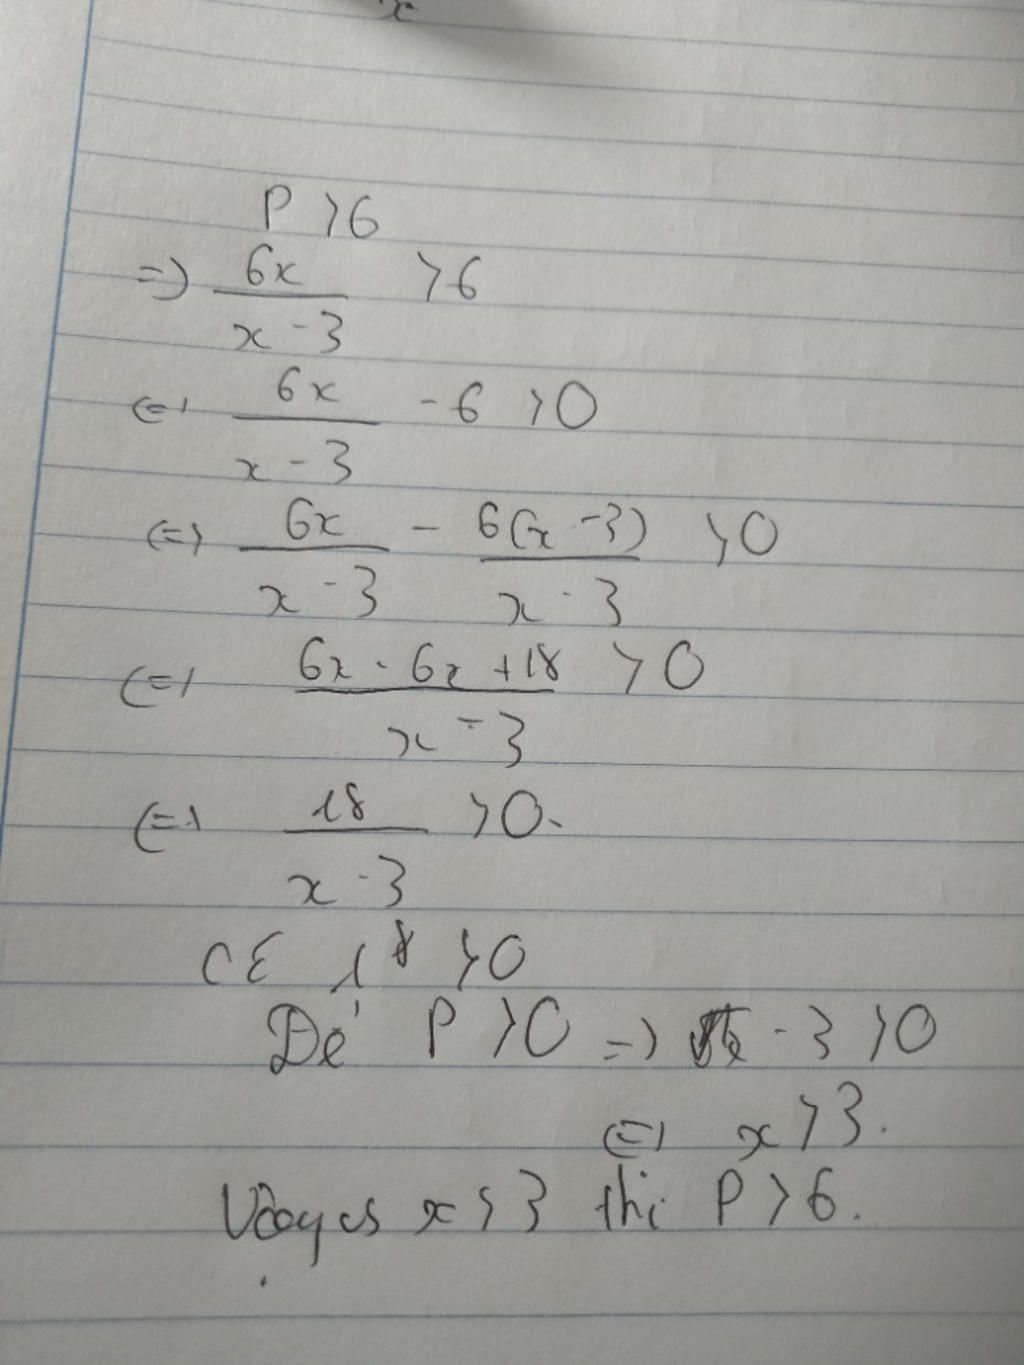 x
P > 6
=> 6x / x - 3 > 6
<=> 6x / x - 3 - 6 > 0
<=> 6x / x - 3 - 6(x - 3) / x - 3 > 0
<=> 6x - 6x + 18 / x - 3 > 0
<=> 18 / x - 3 > 0.
18 > 0
Để P > 0 => - 3 > 0
<=> x > 3.
Vậy x > 3 thì P > 6.